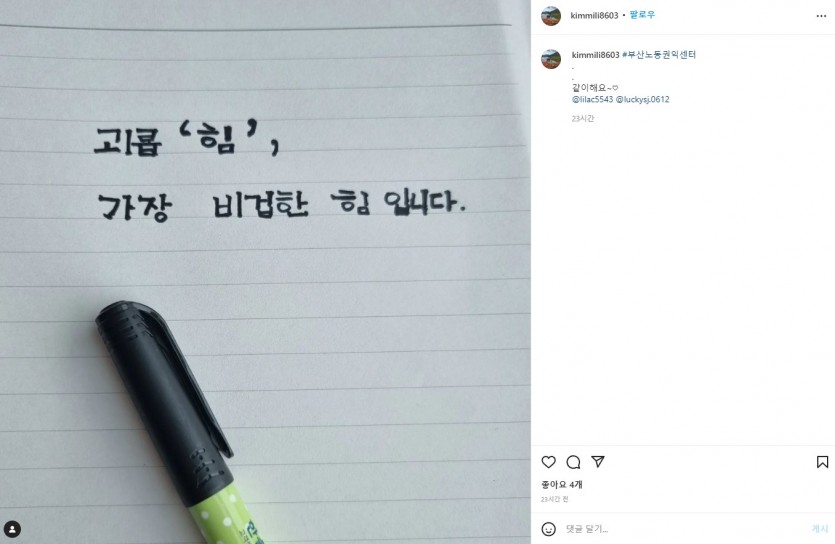 괴롭 '힘',
가장 비겁한 힘 입니다.
kimmili8603 • 팔로우
kimmili8603 #부산노동권익센터
.
.
같이해요~♡
@lilac5543 @luckysj.0612
23시간
좋아요 4개
23시간 전
댓글 달기...
게시